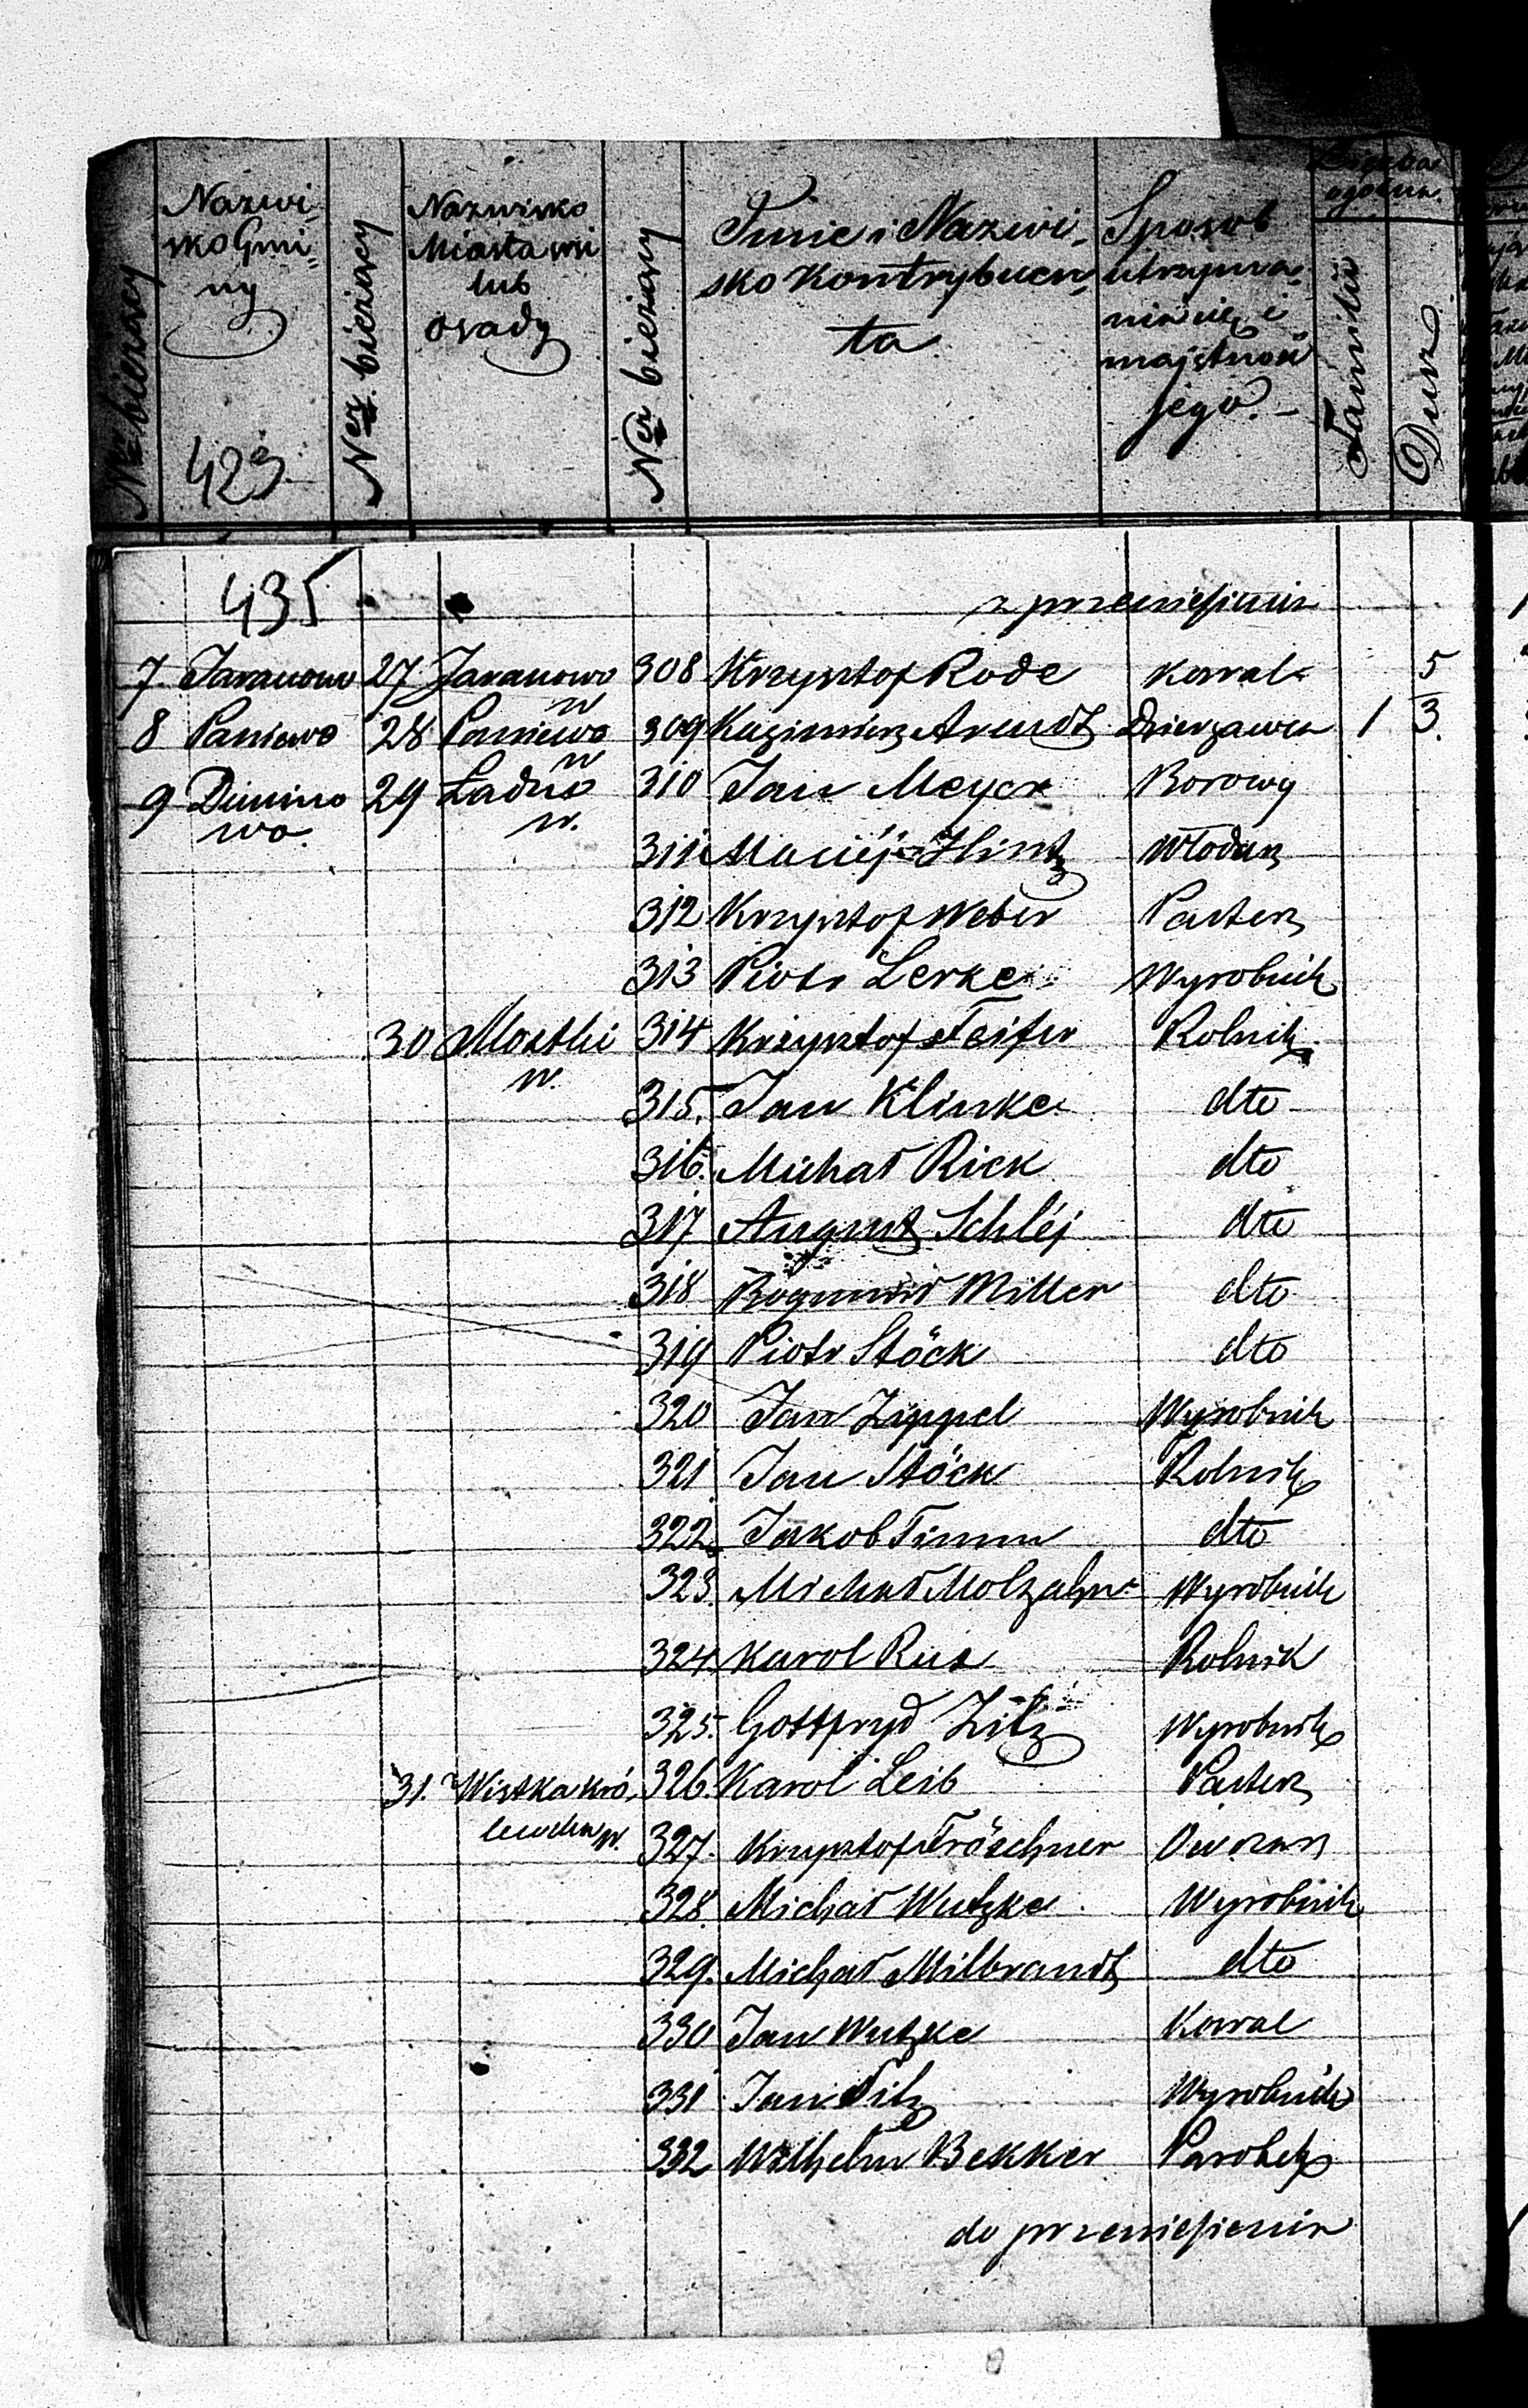 Ner bieżący
Nazwi-
sko Gmi-
ny
423
Ner bieżący
Nazwisko
Miasta wsi
lub
osady
Ner bieżący
Imie i Nazwi-
sko Kontrybuen-
ta
Sposob
utrzyma-
nia się i
majętność
jego.
Liczba
ogolna
Familii
Dusz
435
z przeniesienia
7 Jaranowo 27 Jaranowo 308 Krzysztof Rode Kowal 5
w
8 Paniewo 28 Paniewo 309 Kazimierz Arendt Dzierzawca 1 3.
w
9 Dunino 29 Ladno 310 Jan Meyer Borowy
wo. w.
311 Maciéj Hintz Włodarz
312 Krzysztof Weber Pasterz
313 Piotr Lerke Wyrobnik
30 Mostki 314 Krzysztof Feifer Rolnik
w.
315. Jan Klinke dto
316. Michał Rick dto
317 August Schléj dto
318 Bogumił Miller dto
319 Piotr Stöck dto
320 Jan Zippel Wyrobnik
321 Jan Stöck Rolnik
322. Jakob Timm dto
323. Michał Molzahn Wyrobnik
324. Karol Rus Rolnik
325. Gottfryd Zilz Wyrobnik
31. Wistka kró- 326. Karol Leib Pasterz
lewska w. 327. Krzysztof Fröschner Owczarz
328. Michał Wutzke Wyrobnik
329. Michał Milbrandt dto
330 Jan Wutzke Kowal
331 Jan Filz Wyrobnik
332 Wilhelm Bekker Parobek
do przeniesienia